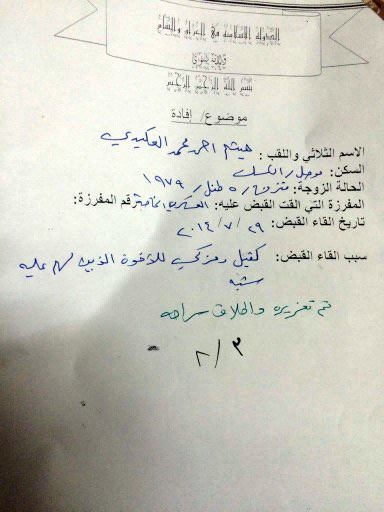 الدولة الاسلامية في العراق والشام
ولاية نينوى
بسم الله الرحمن الرحيم
موضوع/ إفادة
الاسم الثلاثي واللقب : هيثم احمد محمد العكيدي
السكن: موصل /
الحالة الزوجة: متزوج / ٥ طفل / ١٩٧٩
المفرزة التي القت القبض عليه: العسكرية رقم المفرزة:
تاريخ القاء القبض: ٢٩ / ٧ / ٢٠١٤
سبب القاء القبض: كفيل للأخوة الذين لهم عليه
شبه
تم تعزيره واطلاق سراحه
٨/٣